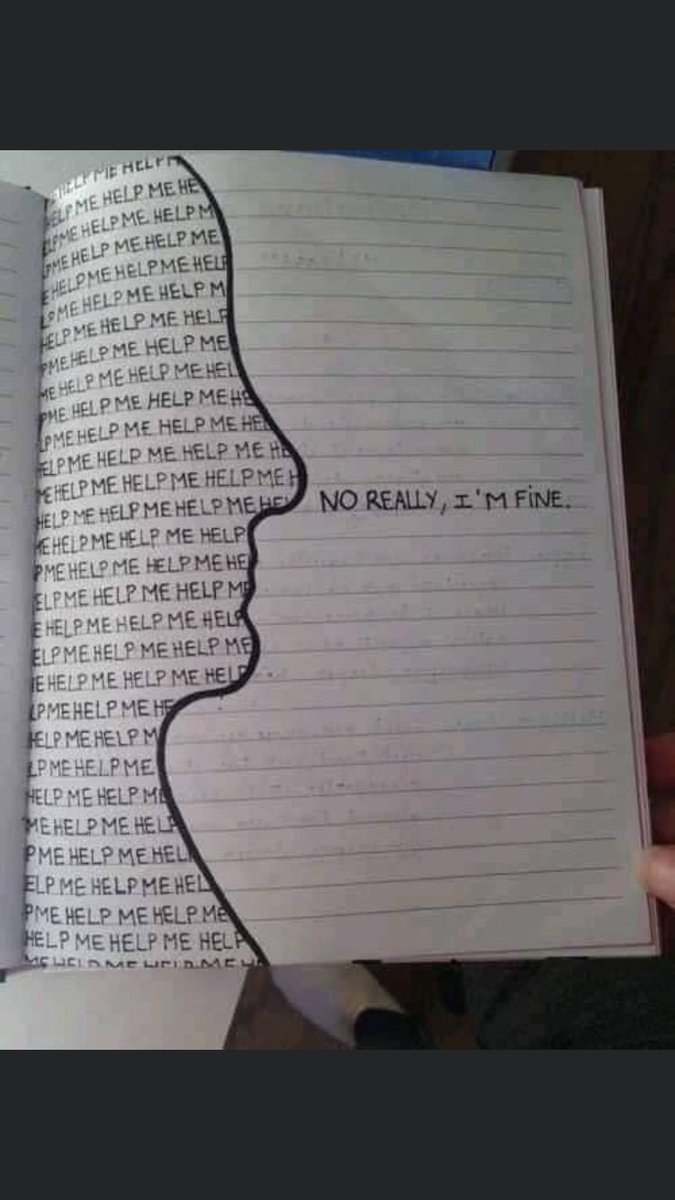 HELP ME HELP
ELPME HELP ME HE
ELPME HELP ME HELP M
PME HELP ME HELP ME
E HELPME HELPME HELP
LP ME HELP ME HELP M
HELP ME HELP ME HELP
PME HELP ME HELP ME
ME HELP ME HELP ME HEL
PME HELP ME HELP ME HE
LPME HELP ME HELP ME HEL
ELPME HELP ME HELP ME HE
ME HELP ME HELP ME HELPME H
HELP ME HELPME HELPME HEL
NO REALLY, I'M FINE.
ME HELP ME HELP ME HELP
PME HELP ME HELP ME HE
ELPME HELP ME HELP ME
E HELP ME HELP ME HELP
ELPME HELP ME HELP ME
E HELP ME HELP ME HELP
LPME HELP ME HE
HELP ME HELP M
LP ME HELP ME
HELP ME HELP M
ME HELP ME HELP
P ME HELP ME HEL
ELP ME HELP ME HEL
PME HELP ME HELP ME
HELP ME HELP ME HELP
ME HELP ME HELP ME H